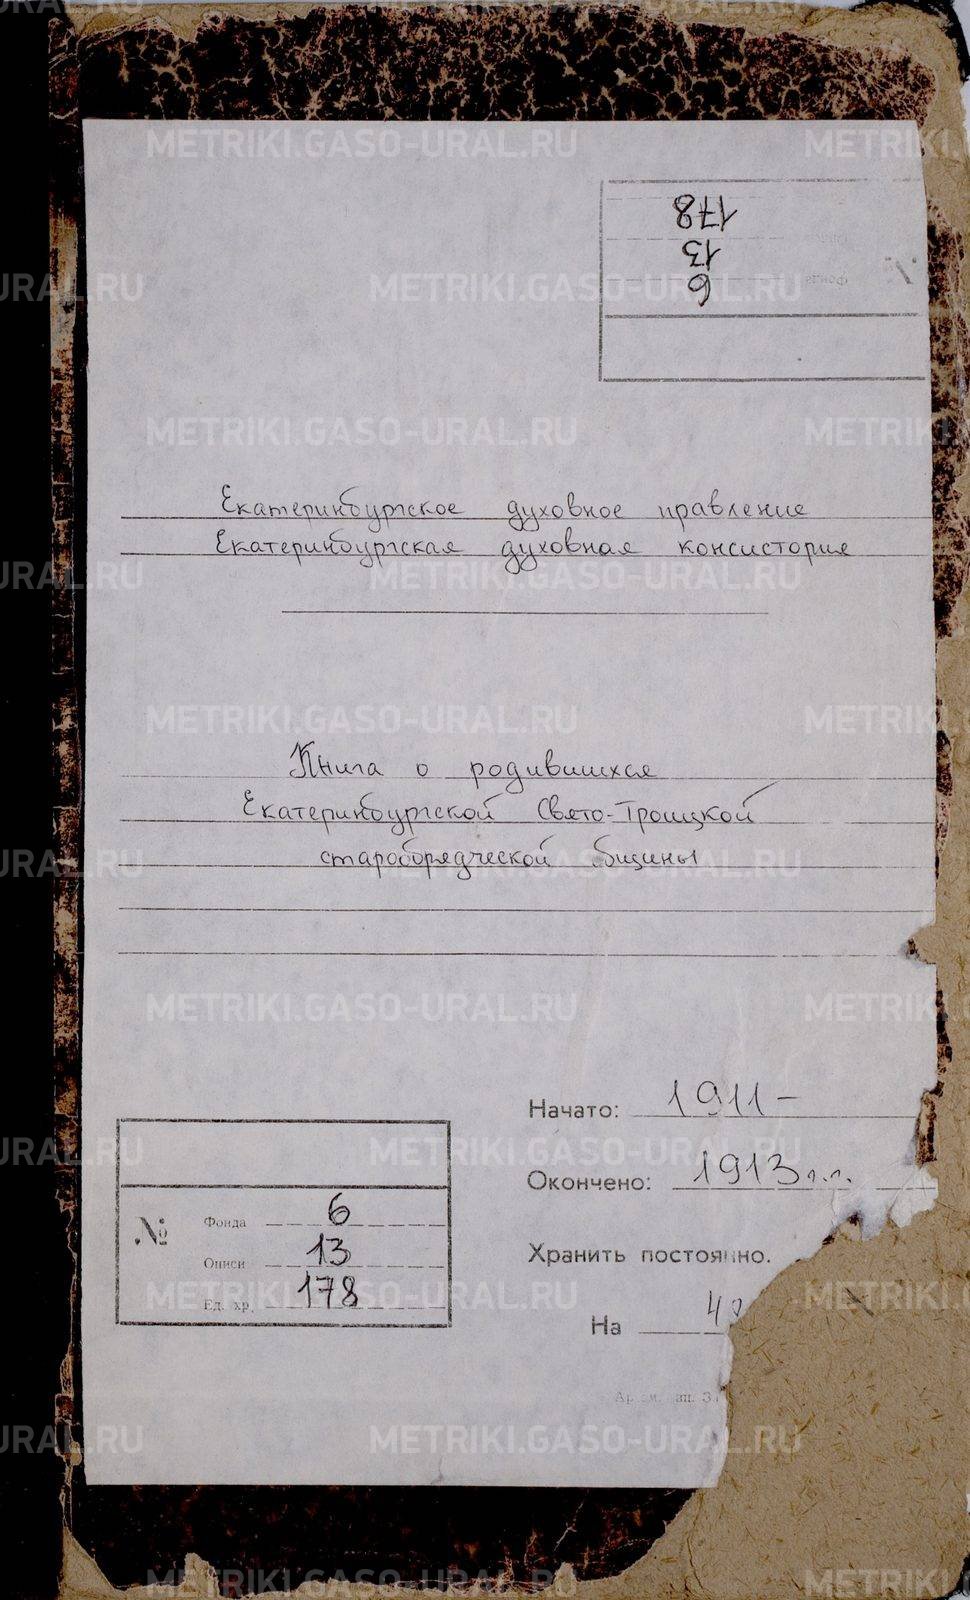 178
13
6
Екатеринбургское духовное правление
Екатеринбургская духовная консистория
Книга о родившихся
Екатеринбургской Свято-Троицкой
староборядческой бщины
Начато: 1911-
Окончено: 1913 г.г.
Хранить постоянно.
На
№
Фонда 6
Описи 13
Ед. хр. 178
METRIKI.GASO-URAL.RU